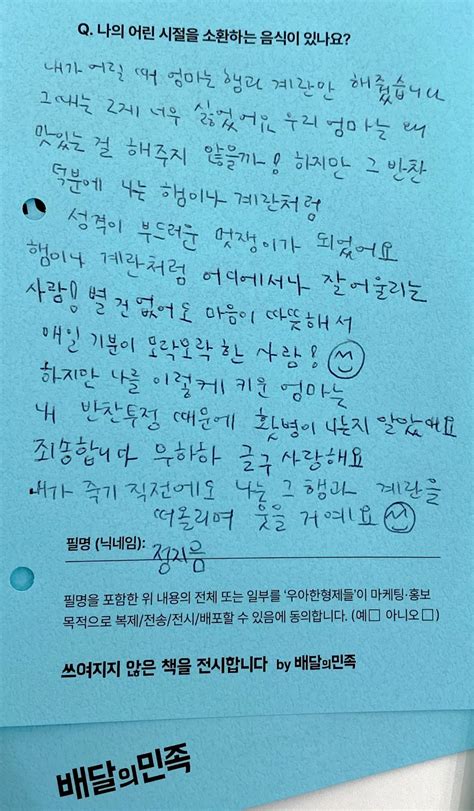 Q. 나의 어린 시절을 소환하는 음식이 있나요?
내가 어릴 때 엄마는 햄과 계란만 해줬습니다
그때는 그게 너무 싫었어요 우리 엄마는 왜
맛있는 걸 해주지 않을까! 하지만 그 반찬
덕분에 나는 햄이나 계란처럼
성격이 부드러운 멋쟁이가 되었어요
햄이나 계란처럼 어디에서나 잘 어울리는
사람! 별 건 없어도 마음이 따뜻해서
매일 기분이 모락모락 한 사람!
하지만 나를 이렇게 키운 엄마는
내 반찬투정 때문에 홧병이 나는지 알았대요
죄송합니다 우하하 글구 사랑해요
내가 죽기 직전에도 나는 그 햄과 계란을
떠올리며 웃을 거예요
필명 (닉네임): 정지음
필명을 포함한 위 내용의 전체 또는 일부를 '우아한형제들'이 마케팅·홍보
목적으로 복제/전송/전시/배포할 수 있음에 동의합니다. (예□ 아니오□)
쓰여지지 않은 책을 전시합니다 by 배달의민족
배달의민족